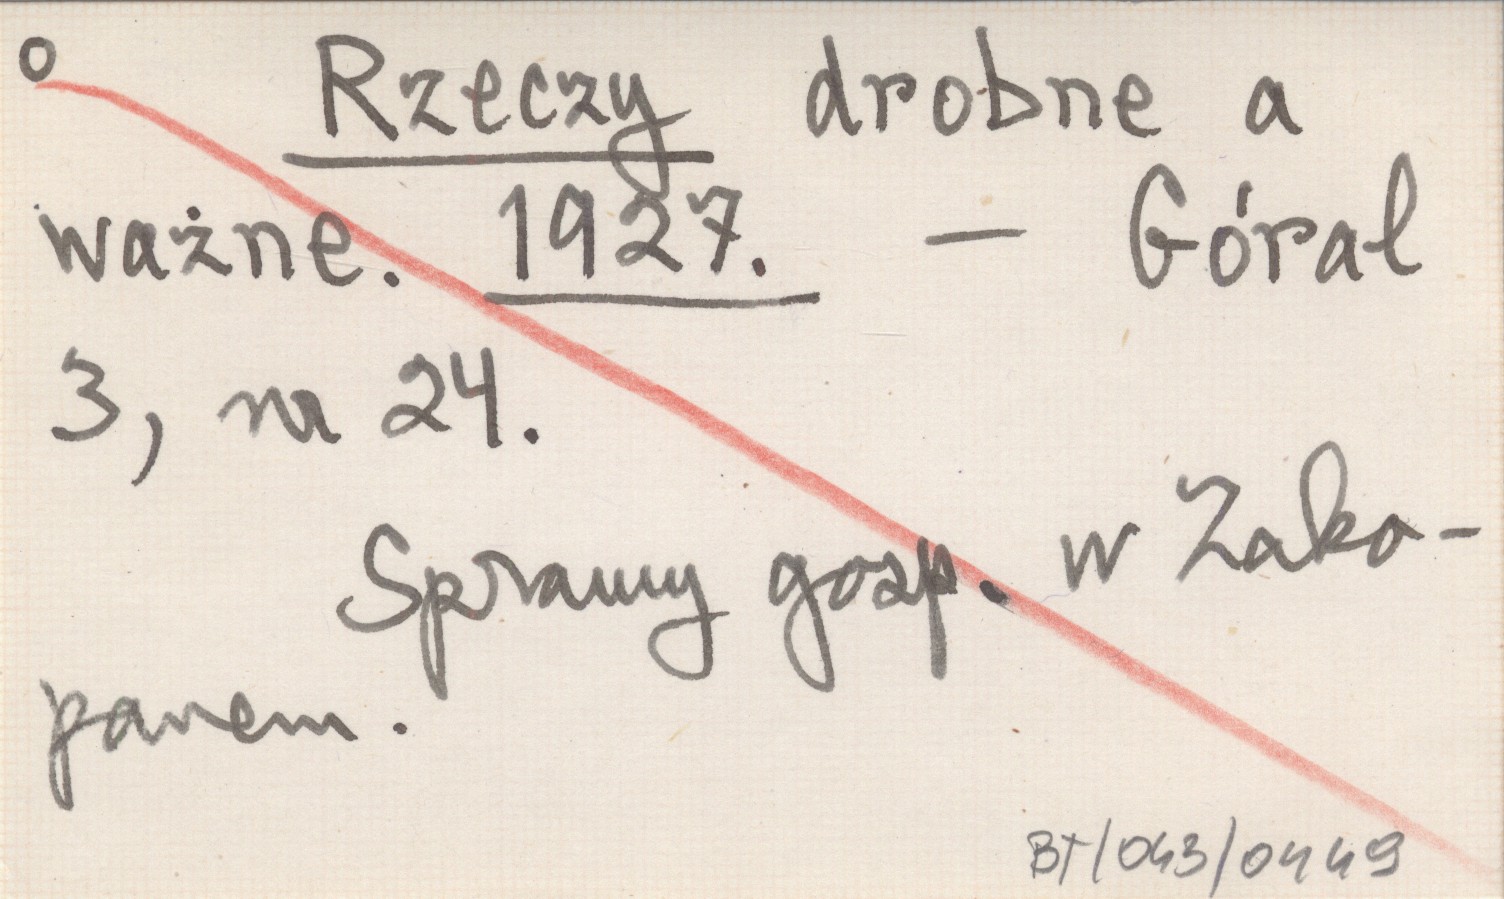 o Rzeczy drobne a
ważne. 1927. — Góral
3, nr 24.
Sprawy gosp. w Zako-
panem.
BT/043/0449